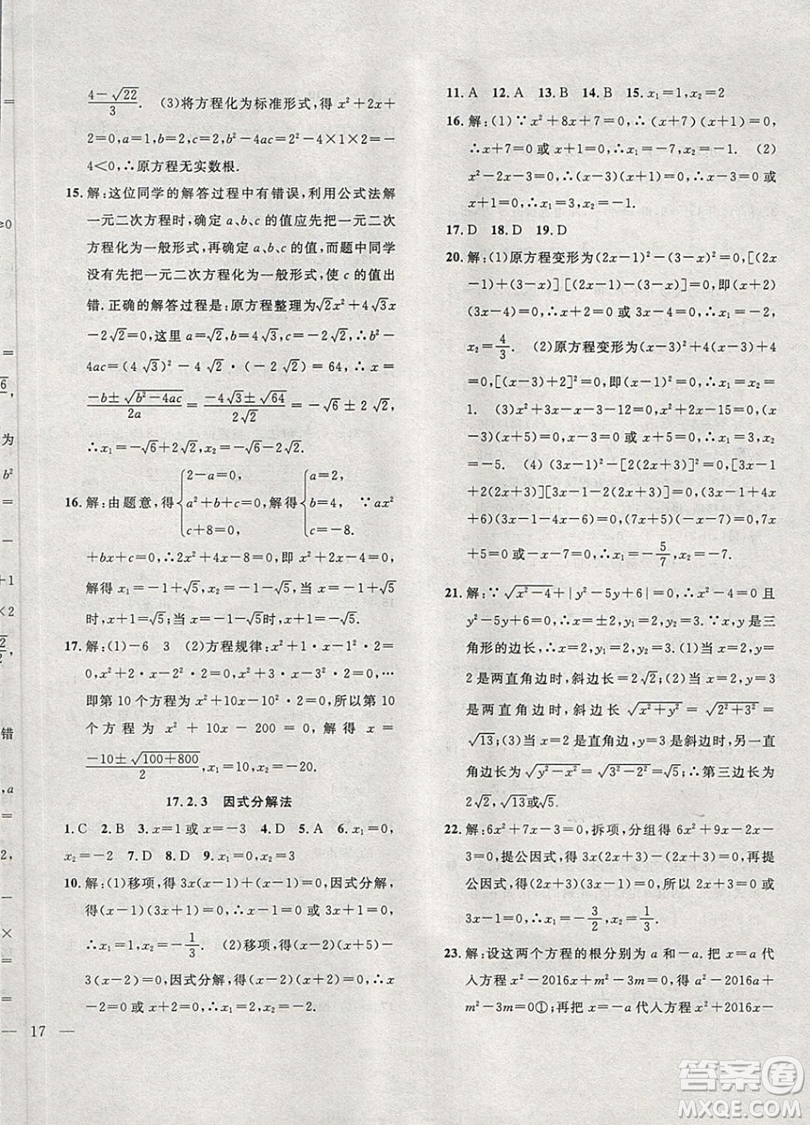 (4-√22)/3. (3)将方程化为标准形式,得 x²+2x+
2=0,a=1,b=2,c=2,b²-4ac=2²-4×1×2=
-4<0,∴原方程无实数根.
15. 解:这位同学的解答过程中有错误,利用公式法解
一元二次方程时,确定 a、b、c 的值应先把一元二次
方程化为一般形式,再确定 a、b、c 的值,而题中同学
没有先把一元二次方程化为一般形式,致使 c 的值出
错.正确的解答过程是:原方程整理为√2x²+4√3x
-2√2=0,这里 a=√2,b=4√3,c=-2√2,∴b²-
4ac=(4√3)²-4×√2·(-2√2)=64,∴x=
(-b±√(b²-4ac))/2a=(-4√3±√64)/2√2=-√6±2√2,
∴x₁=-√6+2√2,x₂=-√6-2√2.
16. 解:由题意,得{2-a=0, a²+b+c=0, c+8=0.解得{a=2, b=4, c=-8. ∵ax²
+bx+c=0,∴2x²+4x-8=0,即 x²+2x-4=0,
解得 x₁=-1+√5,x₂=-1-√5,∴当 x=-1+√5
时,x²+2x=4;当 x=-1-√5时,x²+2x=4.
17. 解:(1)-6 3 (2)方程规律:x²+1·x-2·1²
=0,x²+2·x-2·2²=0,x²+3·x-2·3²=0,…
即第 10 个方程为 x²+10·x-2·10²=0,所以第 10
个方程为 x²+10x-200=0,解得 x=
(-10±√(100+800))/2,∴x₁=10,x₂=-20.
17.2.3 因式分解法
1. C 2. B 3. x=1或x=-3 4. D 5. A 6. x₁=0,
x₂=-2 7. D 8. D 9. x₁=0,x₂=3
10. 解:(1)移项,得 3x(x-1)+(x-1)=0,因式分解,
得(x-1)(3x+1)=0,∴x-1=0 或 3x+1=0,
∴x₁=1,x₂=-1/3. (2)移项,得(x-3)(x+5)-
3(x-3)=0,因式分解,得(x-3)(x+2)=0,∴x-
3=0 或 x+2=0,∴x₁=3,x₂=-2.
11. A 12. A 13. B 14. B 15. x₁=1,x₂=2
16. 解:(1)∵x²+8x+7=0,∴(x+7)(x+1)=0,
∴x+7=0 或 x+1=0,∴x₁=-7,x₂=-1. (2)
∵x²-3x-4=0,∴(x-4)(x+1)=0,∴x-4=0 或
x+1=0,∴x₁=4,x₂=-1.
17. D 18. D 19. D
20. 解:(1)原方程变形为(2x-1)²-(3-x)²=0,[(2x
-1)+(3-x)][(2x-1)-(3-x)]=0,即(x+
2)(3x-4)=0,∴x+2=0 或 3x-4=0,∴x₁=-2,
x₂=4/3. (2)原方程变形为(x-3)²+4(x-3)+4
=0,即[(x-3)+2]²=0,∴(x-1)²=0,∴x₁=x₂=
1. (3)x²+2x-3-12=0,x²+2x-15=0,(x+
5)(x-3)=0,∴x-3=0 或 x+5=0,∴x₁=3,x₂
=-5. (4) (5x-1)²-[2(x+3)]²=0,[(5x-1)+
2(x+3)][(5x-1)-2(x+3)]=0,(5x-1+2x+
6)(5x-1-2x-6)=0,(7x+5)(3x-7)=0,∴7x
+5=0 或 3x-7=0,∴x₁=-5/7,x₂=7/3.
21. 解:∵√(x²-4)+|y²-5y+6|=0,∴x²-4=0 且
y²-5y+6=0,∴x=±2,y=2 或 3,∵x、y 是三
角形的边长,∴x=2,y=2 或 3.(1)当 x=2,y=2
是两直角边时,斜边长=2√2;(2)当 x=2,y=3
是两直角边时,斜边长为√(x²+y²)=√(2²+3²)=
√13;(3)当 x=2 是直角边,y=3 是斜边时,另一
直角边长为√(y²-x²)=√5.综上,第三边长为
2√2,√13或√5.
22. 解:6x²+7x+2=0,拆项,分组得 6x²+4x+3x+2
=0,提公因式,得 2x(3x+2)+(3x+2)=0,再提
公因式,得(3x+2)(2x+1)=0,∴2x+1=0 或
23. 解:设这两个方程的根分别为 a 和-a.把 x=a 代
入方程 x²-2016x+m²-3m=0,得 a²-2016a+
m²-3m=0①;再把 x=-a 代入方程 x²+2016x-
17
答案圈
MXQE.COM